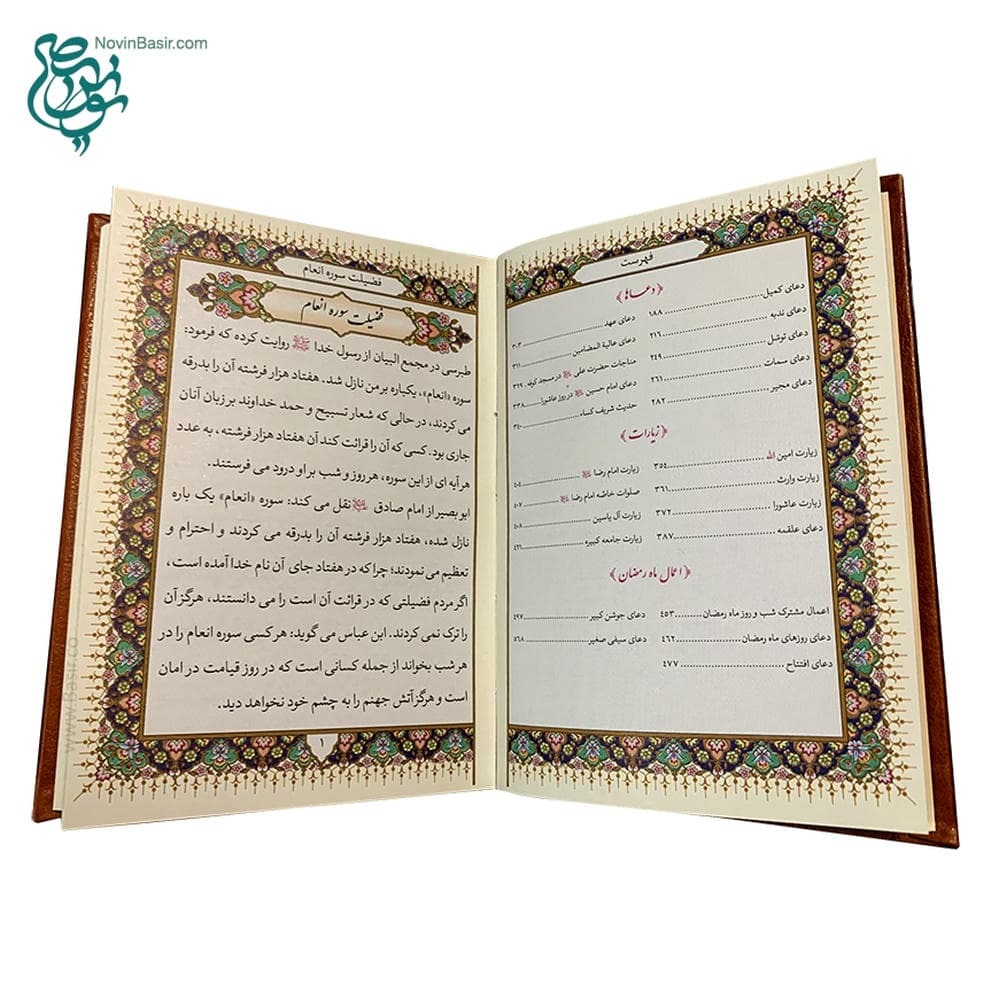 NovinBasir.com
فهرست
﴿ دعاها ﴾
دعای کمیل ۱۸۸
دعای ندبه ۲۱۶
دعای توسّل ۲۴۹
دعای سمات ۲۶۱
دعای مجیر ۲۸۲
دعای عهد ۳۰۳
دعای عالیة المضامین ۳۱۱
مناجات حضرت علی ﷵ در مسجد کوفه ۳۲۹
دعای امام حسین ﷵ در روز عاشورا ۳۳۸
حدیث شریف کساء ۳۴۰
﴿ زیارات ﴾
زیارت امین الله ۳۵۴
زیارت وارث ۳۶۱
زیارت عاشورا ۳۷۲
دعای علقمه ۳۸۷
زیارت امام رضا ۴۰۴
صلوات خاصّه امام رضا ۴۰۷
زیارت آل یاسین ۴۰۸
زیارت جامعه کبیره ۴۲۱
﴿ اعمال ماه رمضان ﴾
اعمال مشترک شب و روز ماه رمضان ۴۵۳
دعای روزهای ماه رمضان ۴۶۲
دعای افتتاح ۴۷۷
دعای جوشن کبیر ۴۹۷
دعای سیفی صغیر ۵۶۸
فضیلت سوره انعام
فضیلت سوره انعام
طبرسی در مجمع البیان از رسول خدا ﷺ روایت کرده که فرمود:
سوره «انعام»، یکباره بر من نازل شد. هفتاد هزار فرشته آن را بدرقه
می کردند، در حالی که شعار تسبیح و حمد خداوند بر زبان آنان
جاری بود. کسی که آن را قرائت کند آن هفتاد هزار فرشته، به عدد
هر آیه ای از این سوره، هر روز و شب بر او درود می فرستند.
ابو بصیر از امام صادق نقل می کند: سوره «انعام» یک باره
نازل شده، هفتاد هزار فرشته آن را بدرقه می کردند و احترام و
تعظیم می نمودند؛ چرا که در هفتاد جای آن نام خدا آمده است،
اگر مردم فضیلتی که در قرائت آن است را می دانستند، هرگز آن
را ترک نمی کردند. ابن عباس می گوید: هر کسی سوره انعام را در
هر شب بخواند از جمله کسانی است که در روز قیامت در امان
است و هرگز آتش جهنم را به چشم خود نخواهد دید.
۱